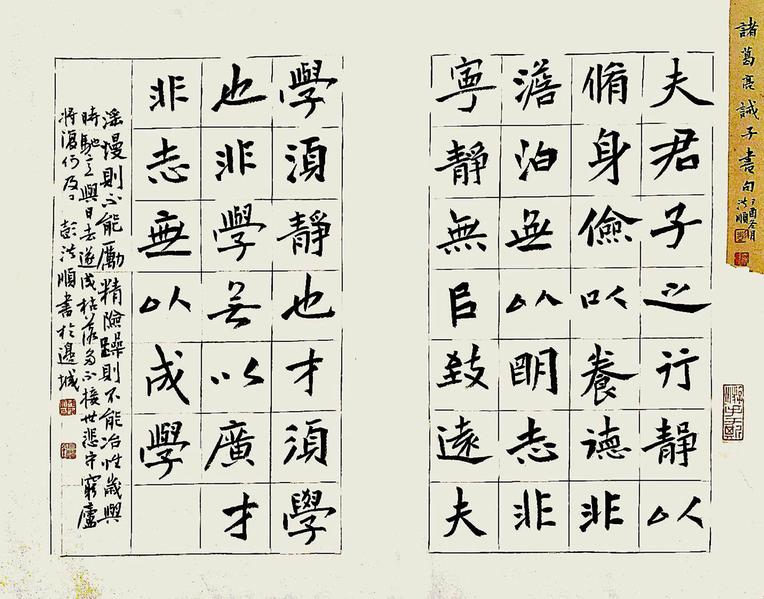 諸葛亮誡子書句
丁酉冬月
洪順
夫君子之行靜以
脩身儉以養德非
澹泊無以眀志非
寧靜無㠯致遠夫
學須靜也才須學
也非學無以廣才
非志無以成學
淫慢則不能勵精險躁則不能冶性歲與
時馳意與日去遂成枯落多不接世悲守窮廬
將復何及 彭洪順書於邊城